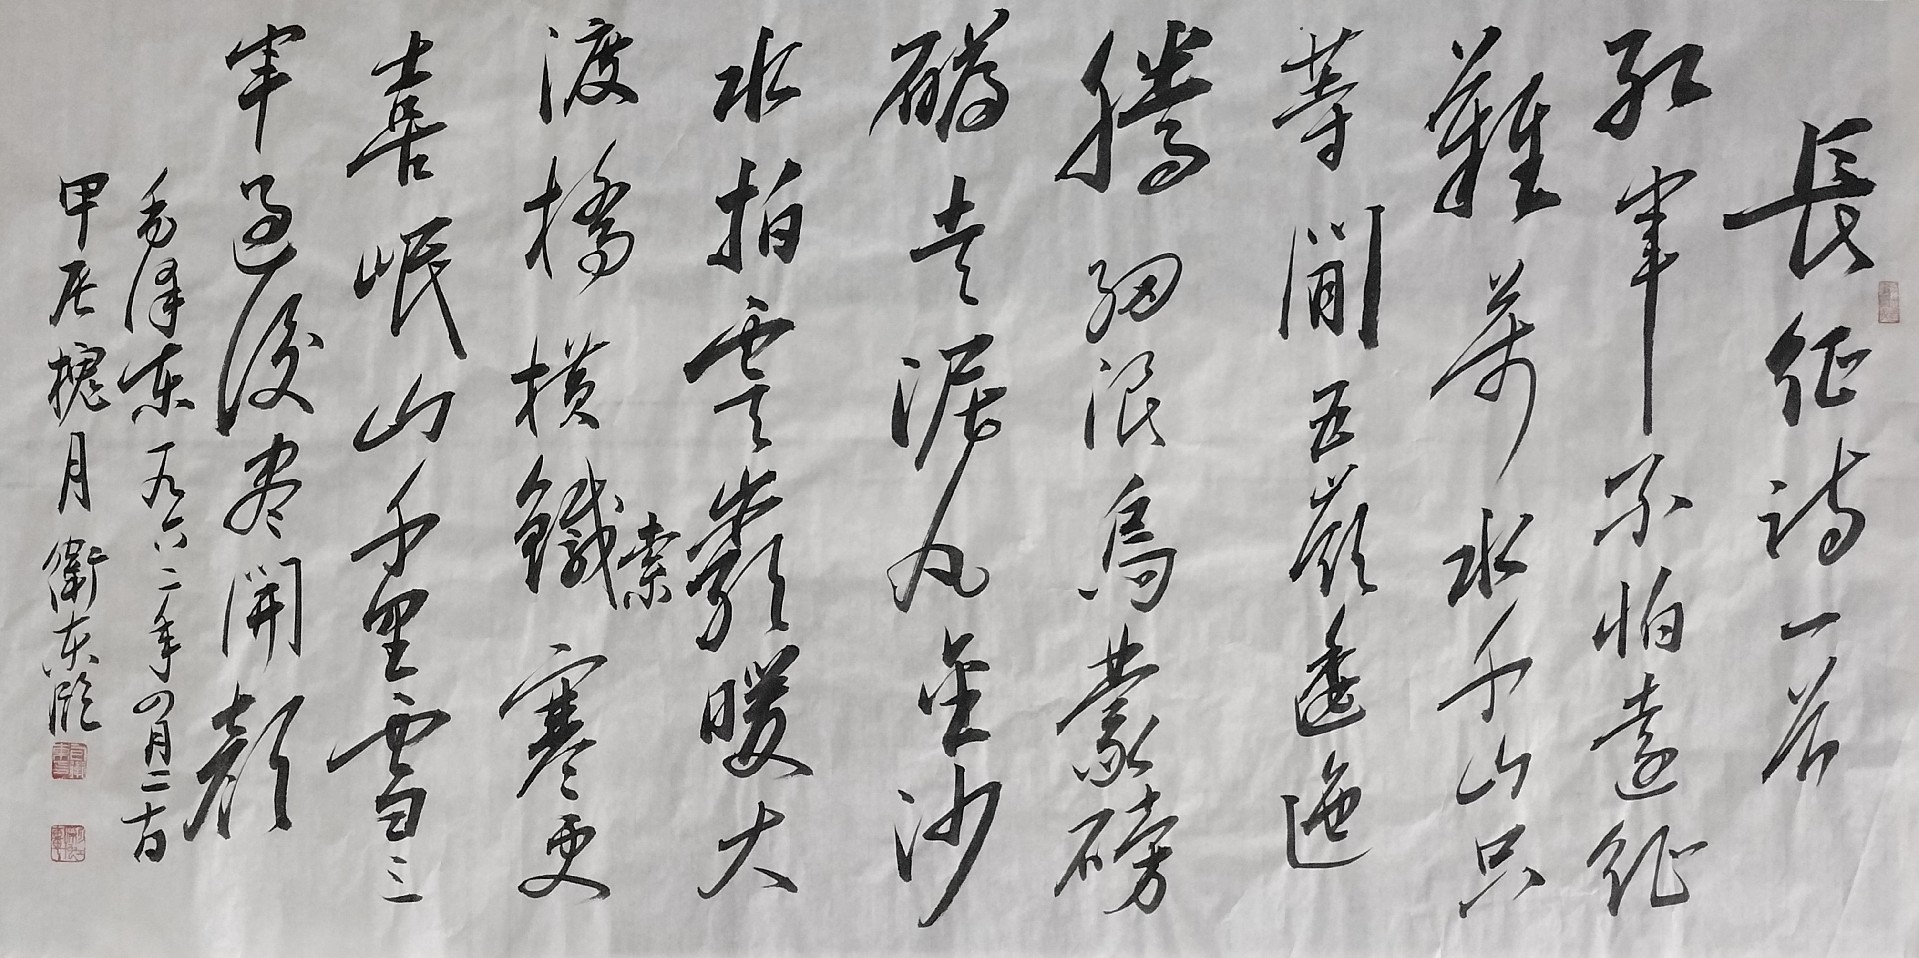 長征詩一首
紅軍不怕遠征
難萬水千山只
等閒五嶺逶迤
騰細浪烏蒙磅
礴走泥丸金沙
水拍雲巖暖大
渡橋橫鐵索寒更
喜岷山千里雪三
軍過後盡開顏
毛澤東一九六二年四月二十日
甲辰槐月 衛東臨